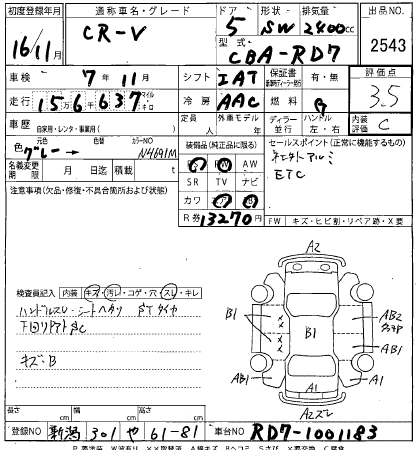 初度登録年月 通称車名・グレード ドア 形状 排気量 出品NO
16/11月 CR-V 5 SW 2400cc 2543
型式 CBA-RD7
車検 7年11月 シフト IAT 保証書 有・無 評価点
走行 156千637 マイル キロ 冷房 AAC 燃料 G 3.5
車歴 自家用・レンタ・事業用( ) 定員 人 外車モデル 年 ディーラー 並行 ハンドル 左・右 内装評価 C
色 グレー → 色替 カラーNO N4691M 装備品(純正品に限る) セールスポイント(正常に機能するもの)
名義変更期限 月 日迄 積載量 t PS PW AW
SR TV ナビ ETC
注意事項(欠品・修復・不具合箇所および状態) カワ
R券 13270円 FW キズ・ヒビ割・リペア跡・X要
検査員記入 内装 キズ・汚レ・コゲ・穴・スレ・キレ
キズ・B
A2
B1 B1 AB2
AB1 A1 A1
A2ズレ
長さ cm 幅 cm 高さ cm
登録NO 新潟 301 や 61-81 車台NO RD7-1001183